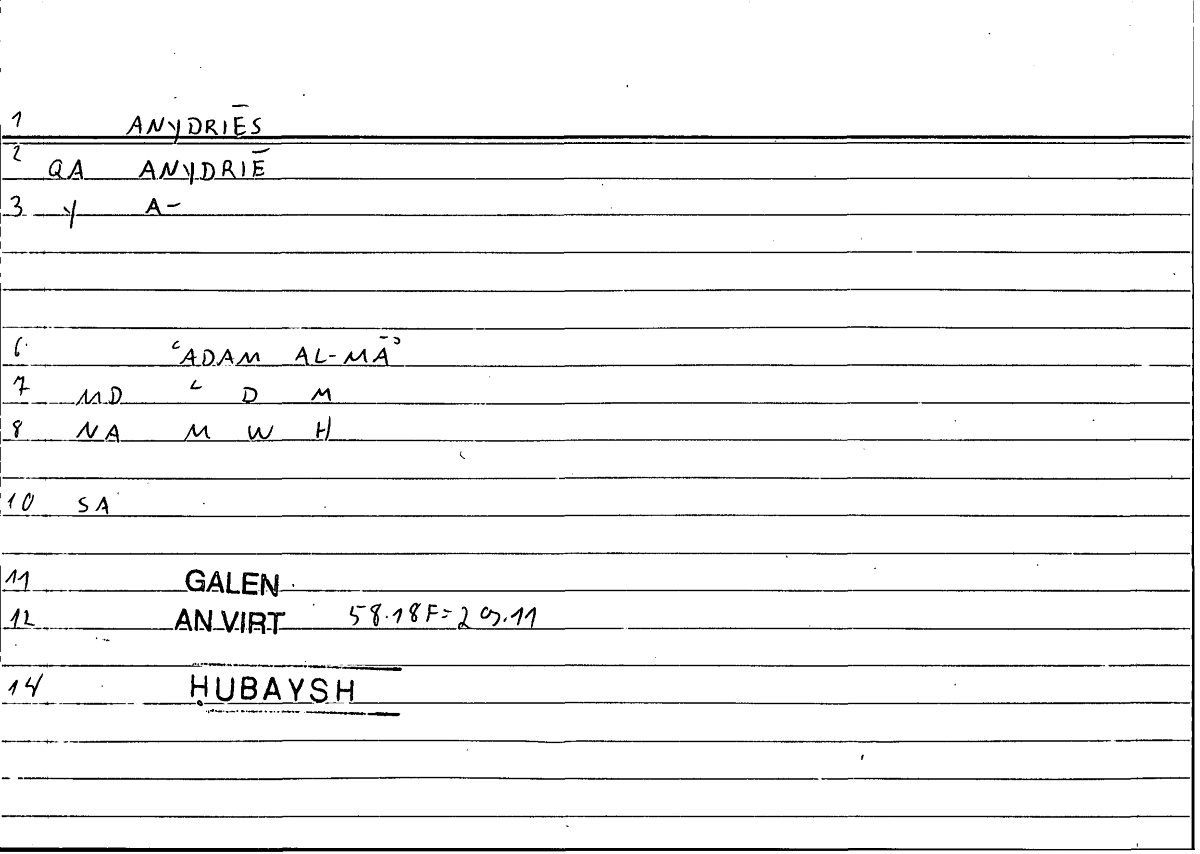 1 ANYDRIĒS
2 QA ANYDRIĒ
3 Y A-
6 ʿADAM AL-MĀʾ
7 MD ʿ D M
8 NA M W H
10 SA
11 GALEN
12 AN VIRT 58.18F=29.11
14 ḤUBAYSH